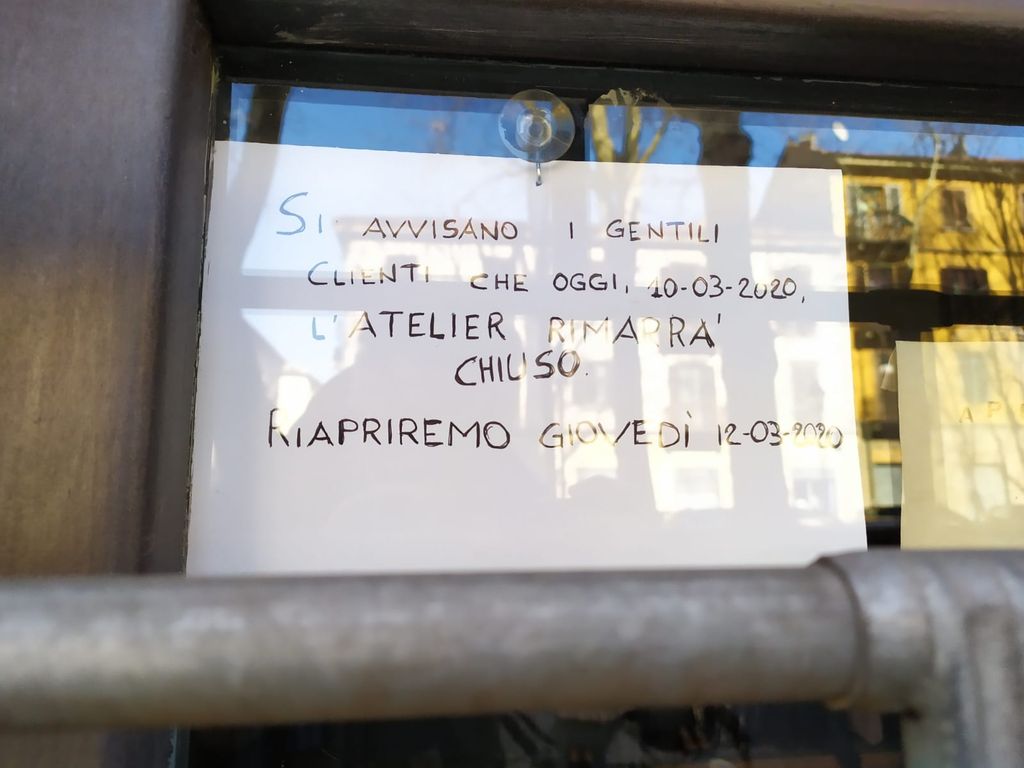 SI AVVISANO I GENTILI
CLIENTI CHE OGGI, 10-03-2020,
L'ATELIER RIMARRA'
CHIUSO.
RIAPRIREMO GIOVEDÌ 12-03-2020